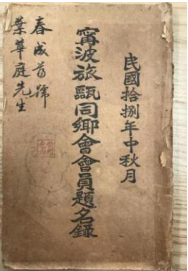 民國拾捌年中秋月
寧波旅甌同鄉會會員題名錄
春成首號
葉華庭先生